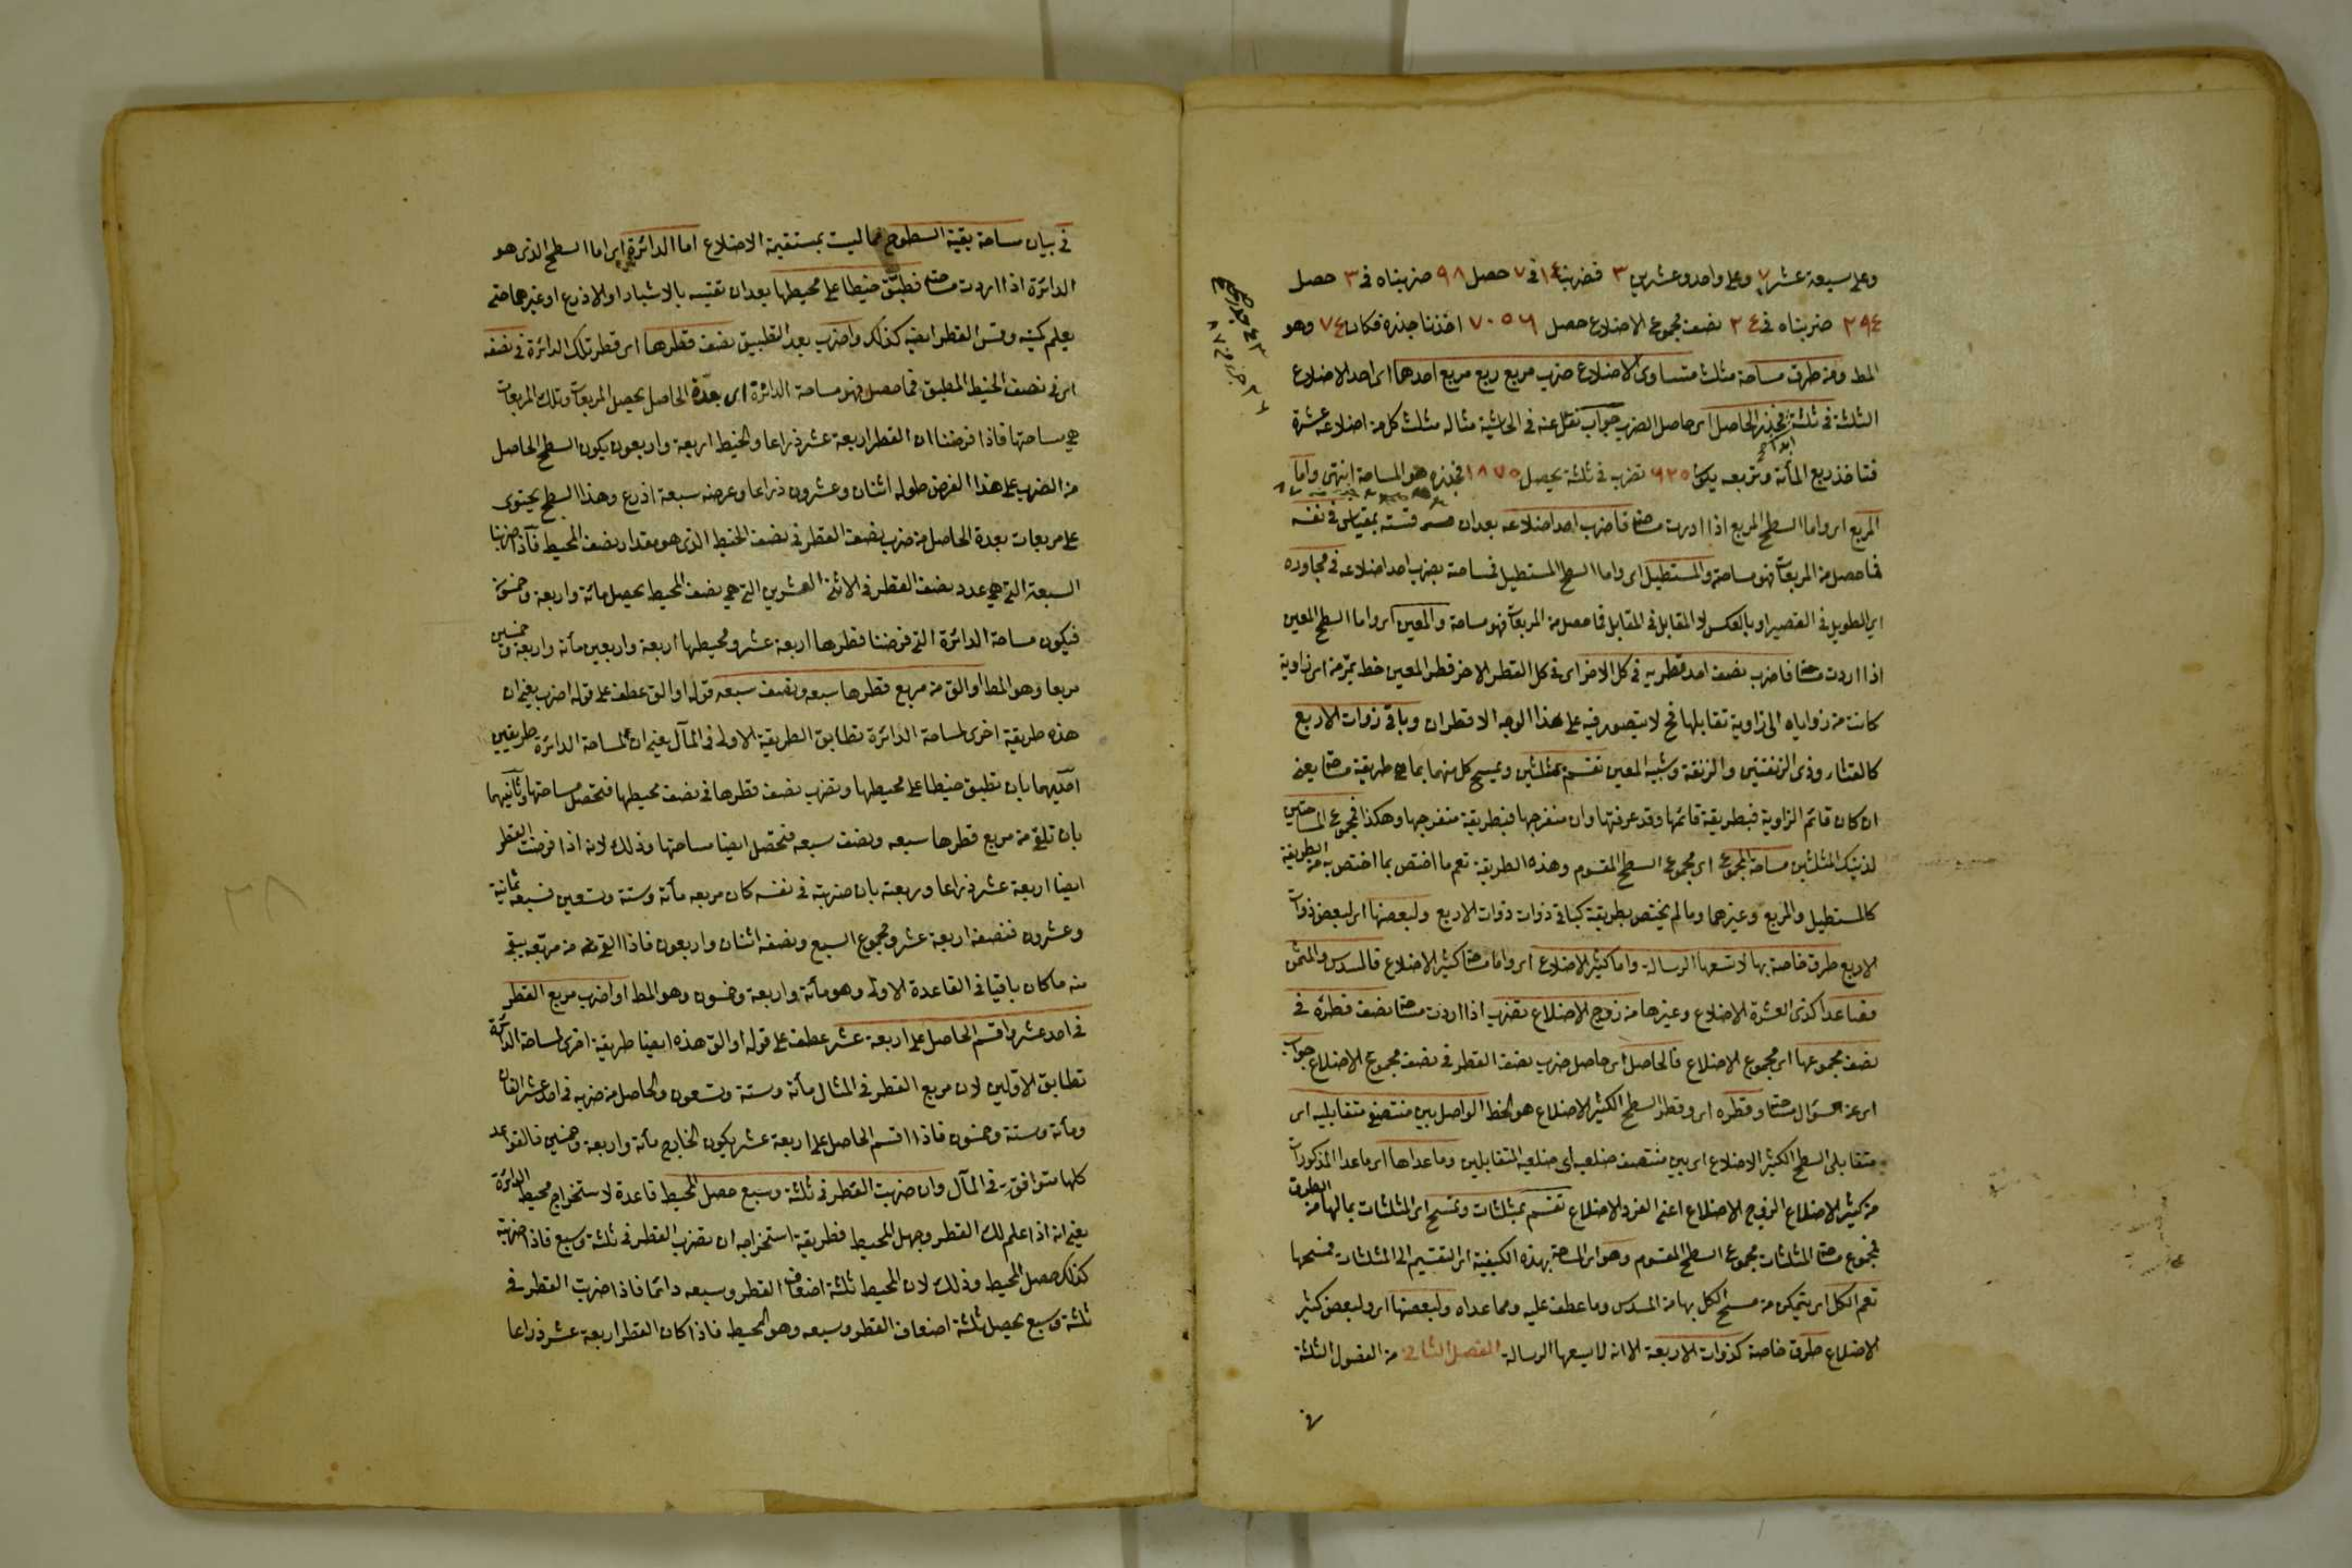 وعلى سبعة عشر ٧ وعلى واحد وعشرين ٣ فضربنا ١٤ في ٧ حصل ٩٨ ضربناه في ٣ حصل
٢٩٤ ضربناه في ٢٤ نصف مجموع الاضلاع حصل ٧٠٥٦ اخذنا جذره فكان ٨٤ وهو
المط ومن طرق مساحة مثلث متساوى الاضلاع ضرب مربع ربع مربع احدها اى احد الاضلاع
الثلثة في ثلثة فجذر الحاصل اى حاصل الضرب جواب نقل عنه في الحاشية مثاله مثلث كل من اضلاعه عشرة
فتاخذ ربع المأة وتربعه يكن ٦٢٥ تضرب في ثلثة يحصل ١٨٧٥ فجذره هو المساحة انتهى واما
المربع اى واما السطح المربع اذا اردت مساحته فاضرب احد اضلاعه بعد ان قسته بمقياس في نفسه
فما حصل من المربعات فهو مساحته والمستطيل اى واما السطح المستطيل فمساحته بضرب احد اضلاعه في مجاوره
اى الطويل في القصير او بالعكس لا المقابل في المقابل فما حصل من المربعات فهو مساحة والمعين اى واما السطح المعين
اذا اردت مساحته فاضرب نصف احد قطريه في كل الاخر اى في كل القطر الاخر قطر المعين خط يمر من اى زاوية
كانت من زواياه الى زاوية تقابلها فح لا يتصور فيه على هذا الوجه الا قطران وباقى ذوات الاربع
كالقثاء وذى الزنقتين والزنقة وشبيه المعين تقسم بمثلثين ويمسح كل منهما بما هى طريقة مساحته يعنى
ان كان قائم الزاوية فبطريقة قائمها وقد عرفتها وان منفرجها فبطريقة منفرجها وهكذا فمجموع المساحتين
لذينك المثلثين مساحة المجموع اى مجموع السطح المقسوم وهذه الطريقة تعم ما اختص بما اختص به من الطريقة
كالمستطيل والمربع وغيرهما وما لم يختص بطريقة كباقى ذوات ذوات الاربع ولبعضها اى لبعض ذوات
الاربع طرق خاصة بها لا تسعها الرسالة واما كثير الاضلاع اى واما مساحة كثير الاضلاع فالمسدس والمثمن
فصاعدا كذى العشرة الاضلاع وغيرها من زوج الاضلاع تضرب اذا اردت مساحته نصف قطره في
نصف مجموعها اى مجموع الاضلاع فالحاصل اى حاصل ضرب نصف القطر في نصف مجموع الاضلاع جواب
اى عن سؤال مساحته وقطره اى وقطر السطح الكثير الاضلاع هو الخط الواصل بين منتصفى متقابليه اى
متقابلى السطح الكثير الاضلاع اى بين منتصف ضلعيه اى ضلعيه المتقابلين وما عداها اى ما عدا المذكورات
من كثير الاضلاع الزوج الاضلاع اعنى الفرد الاضلاع تقسم بمثلثات وتمسح اى المثلثات بمالها من الطرق
فمجموع مساحة المثلثات مجموع السطح المقسوم وهو اى المساحة بهذه الكيفية اى التقسيم الى المثلثات فمسحها
تعم الكل اى يتمكن من مسح الكل بها من المسدس وما عطف عليه ومما عداه ولبعضها اى ولبعض كثير
الاضلاع طرق خاصة كذوات الاربعة الا انه لا يسعها الرسالة الفصل الثانى من الفصول الثلثة
في
في بيان مساحة بقية السطوح مما ليست بمستقيمة الاضلاع اما الدائرة اى اما السطح الذى هو
الدائرة اذا اردت مساحته فطبق خيطا على محيطها بعد ان تقيسه بالاشبار او الاذرع او غيرهما حتى
يعلم كميته وقس القطر ايضا كذلك واضرب بعد التطبيق نصف قطرها اى قطر تلك الدائرة في نصفه
اى في نصف الخيط المطبق فما حصل فهو مساحة الدائرة اى بعدة الحاصل يحصل المربعات وتلك المربعات
هى مساحتها فاذا فرضنا ان القطر اربعة عشر ذراعا والخيط اربعة واربعون يكون السطح الحاصل
من الضرب على هذا الفرض طوله اثنان وعشرون ذراعا وعرضه سبعة اذرع وهذا السطح يحتوى
على مربعات بعدة الحاصل من ضرب نصف القطر في نصف الخيط الذى هو مقدار نصف المحيط فاذا ضربنا
السبعة التى هى عدد نصف القطر في الاثنى العشرين التى هى نصف المحيط يحصل مائة واربعة وخمسون
فيكون مساحة الدائرة التى فرضنا قطرها اربعة عشر ومحيطها اربعة واربعين مأة واربعة وخمسين
مربعا وهو المط او الق من مربع قطرها سبعه ونصف سبعه قوله او الق عطف على قوله اضرب يعنى ان
هذه طريقة اخرى لمساحة الدائرة تطابق الطريقة الاولى في المآل يعنى ان لمساحة الدائرة طريقين
احديهما بان تطبق خيطا على محيطها وتضرب نصف قطرها في نصف محيطها فتحصل مساحتها وثانيهما
بان تلقى من مربع قطرها سبعه ونصف سبعه فتحصل ايضا مساحتها وذلك لانه اذا فرضت القطر
ايضا اربعة عشر ذراعا وربعته بان ضربته في نفسه كان مربعه مأة وستة وتسعين فسبعه ثمانية
وعشرون فنصفه اربعة عشر ومجموع السبع ونصفه اثنان واربعون فاذا القيته من مربعه يبقى
منه ما كان باقيا في القاعدة الاولى وهو مأة واربعة وخمسون وهو المط او اضرب مربع القطر
في احد عشر واقسم الحاصل على اربعة عشر عطف على قوله او الق هذه ايضا طريقة اخرى لمساحة الدائرة
تطابق الاولين لان مربع القطر في المثال مأة وستة وتسعون والحاصل من ضربه في احد عشر الفان
ومأة وستة وخمسون فاذا اقسم الحاصل على اربعة عشر يكون الخارج مأة واربعة وخمسين فالقواعد
كلها متوافق في المآل وان ضربت القطر في ثلثة وسبع حصل المحيط قاعدة لاستخراج محيط الدائرة
يعنى انه اذا علم لك القطر وجهل المحيط فطريقة استخراجه ان تضرب القطر في ثلثة وسبع فاذا ضربته
كذلك حصل المحيط وذلك لان المحيط ثلثة اضعاف القطر وسبعه دائما فاذا ضربت القطر في
ثلثة وسبع يحصل ثلثة اضعاف القطر وسبعه وهو المحيط فاذا كان القطر اربعة عشر ذراعا